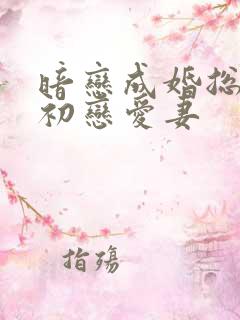 暗戀成婚总
初戀愛妻
指殤